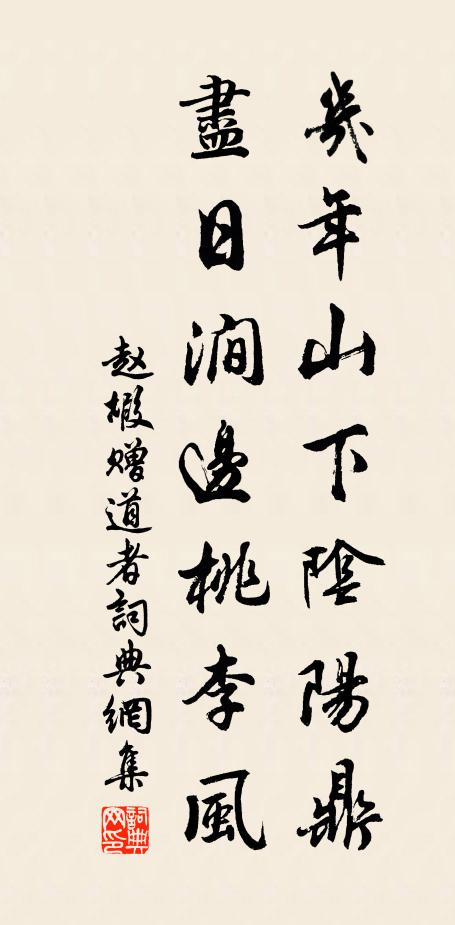 幾年山下陰陽鼎
盡日澗邊桃李風
赵嘏赠道者詞典網集
詞典网印